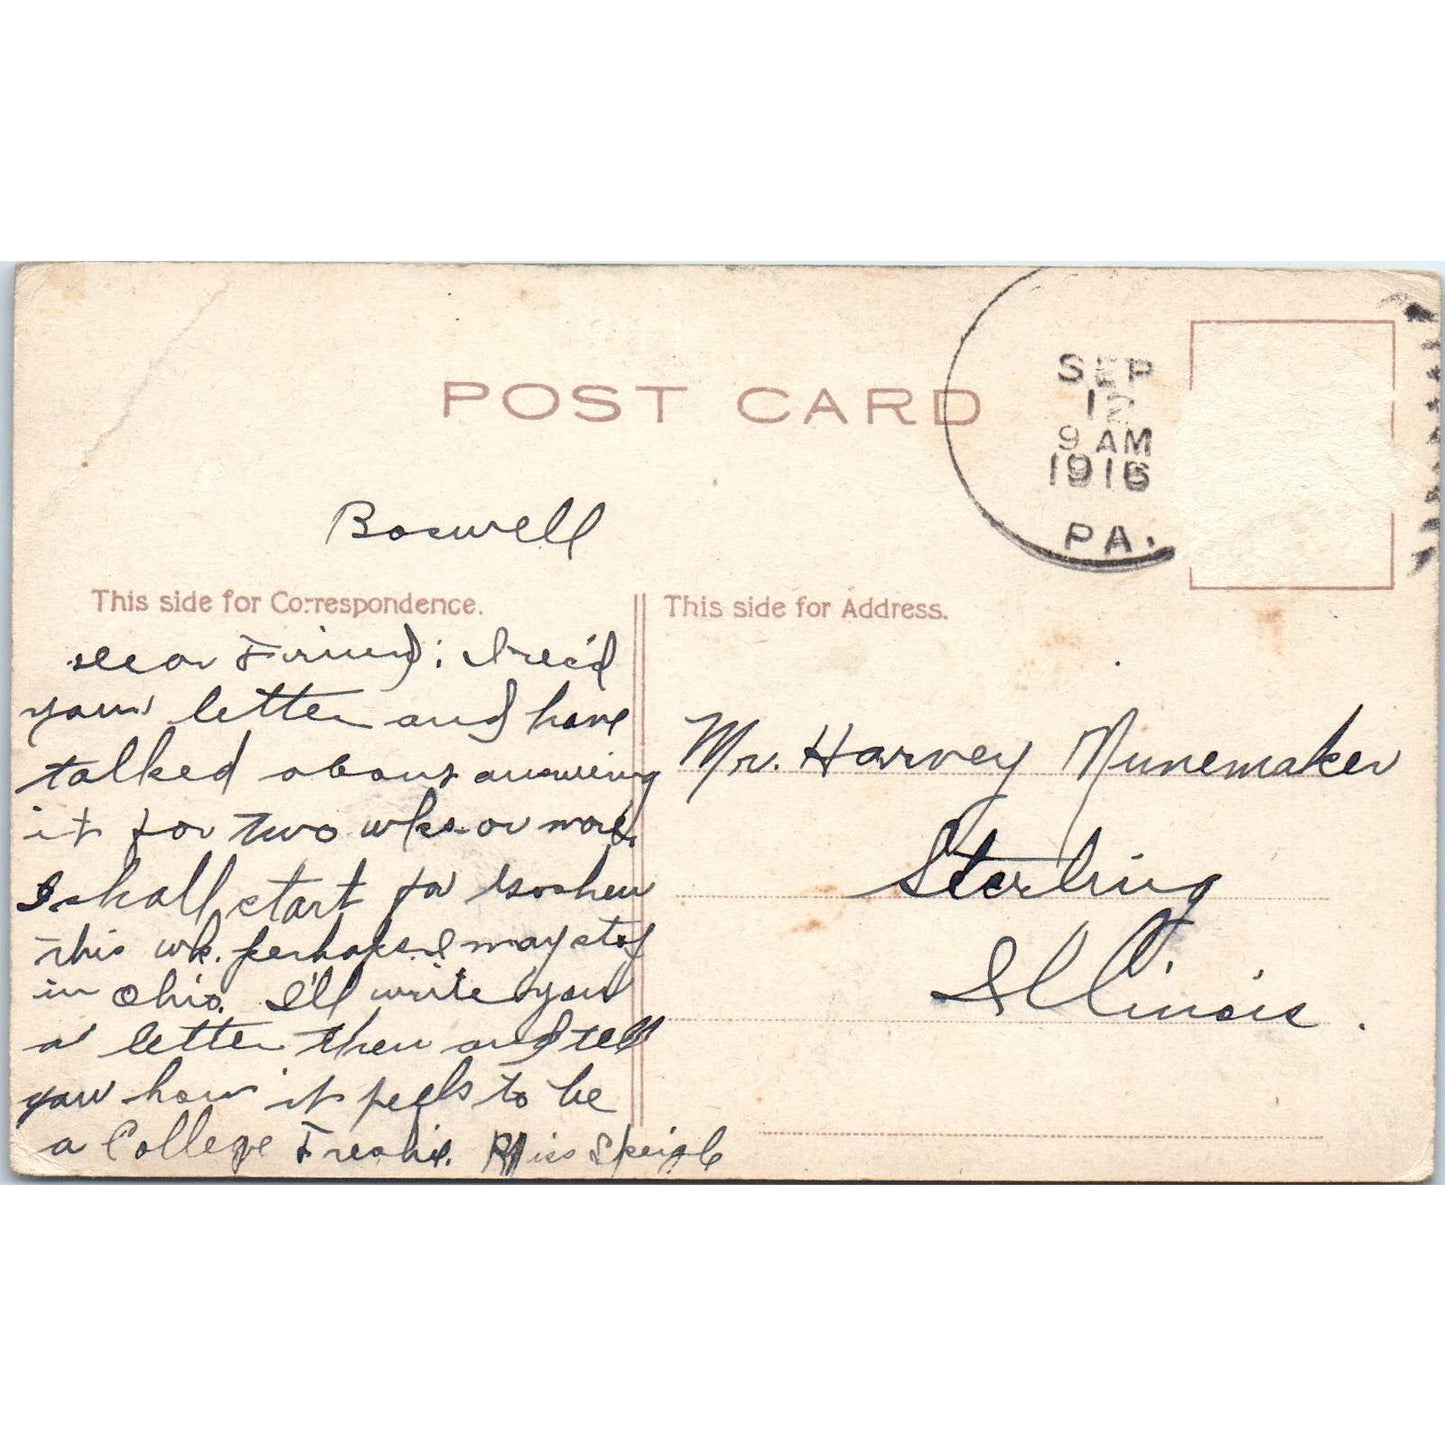 POST CARD
SEP
12
9 AM
1916
PA.
Boswell
This side for Correspondence.
Dear Friend: I rec'd
your letter and have
talked about answering
it for two wks. or more.
I shall start for Goshen
this wk. perhaps. I may stop
in Ohio. I'll write you
a letter then and tell
you how it feels to be
a College Freshie. Miss Speigle
This side for Address.
Mr. Harvey Nunemaker
Sterling
Illinois.